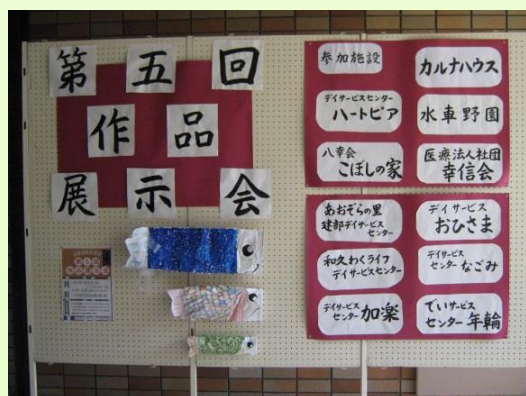 第五回
作品
展示会
参加施設
カルナハウス
デイサービスセンター
ハートピア
水車野園
八幸会
こぼしの家
医療法人社団
幸信会
あおぞらの里
建部デイサービス
センター
デイサービス
おひさま
和久わくライフ
デイサービスセンター
デイサービス
センターなごみ
デイサービス
センター加楽
でいサービス
センター年輪